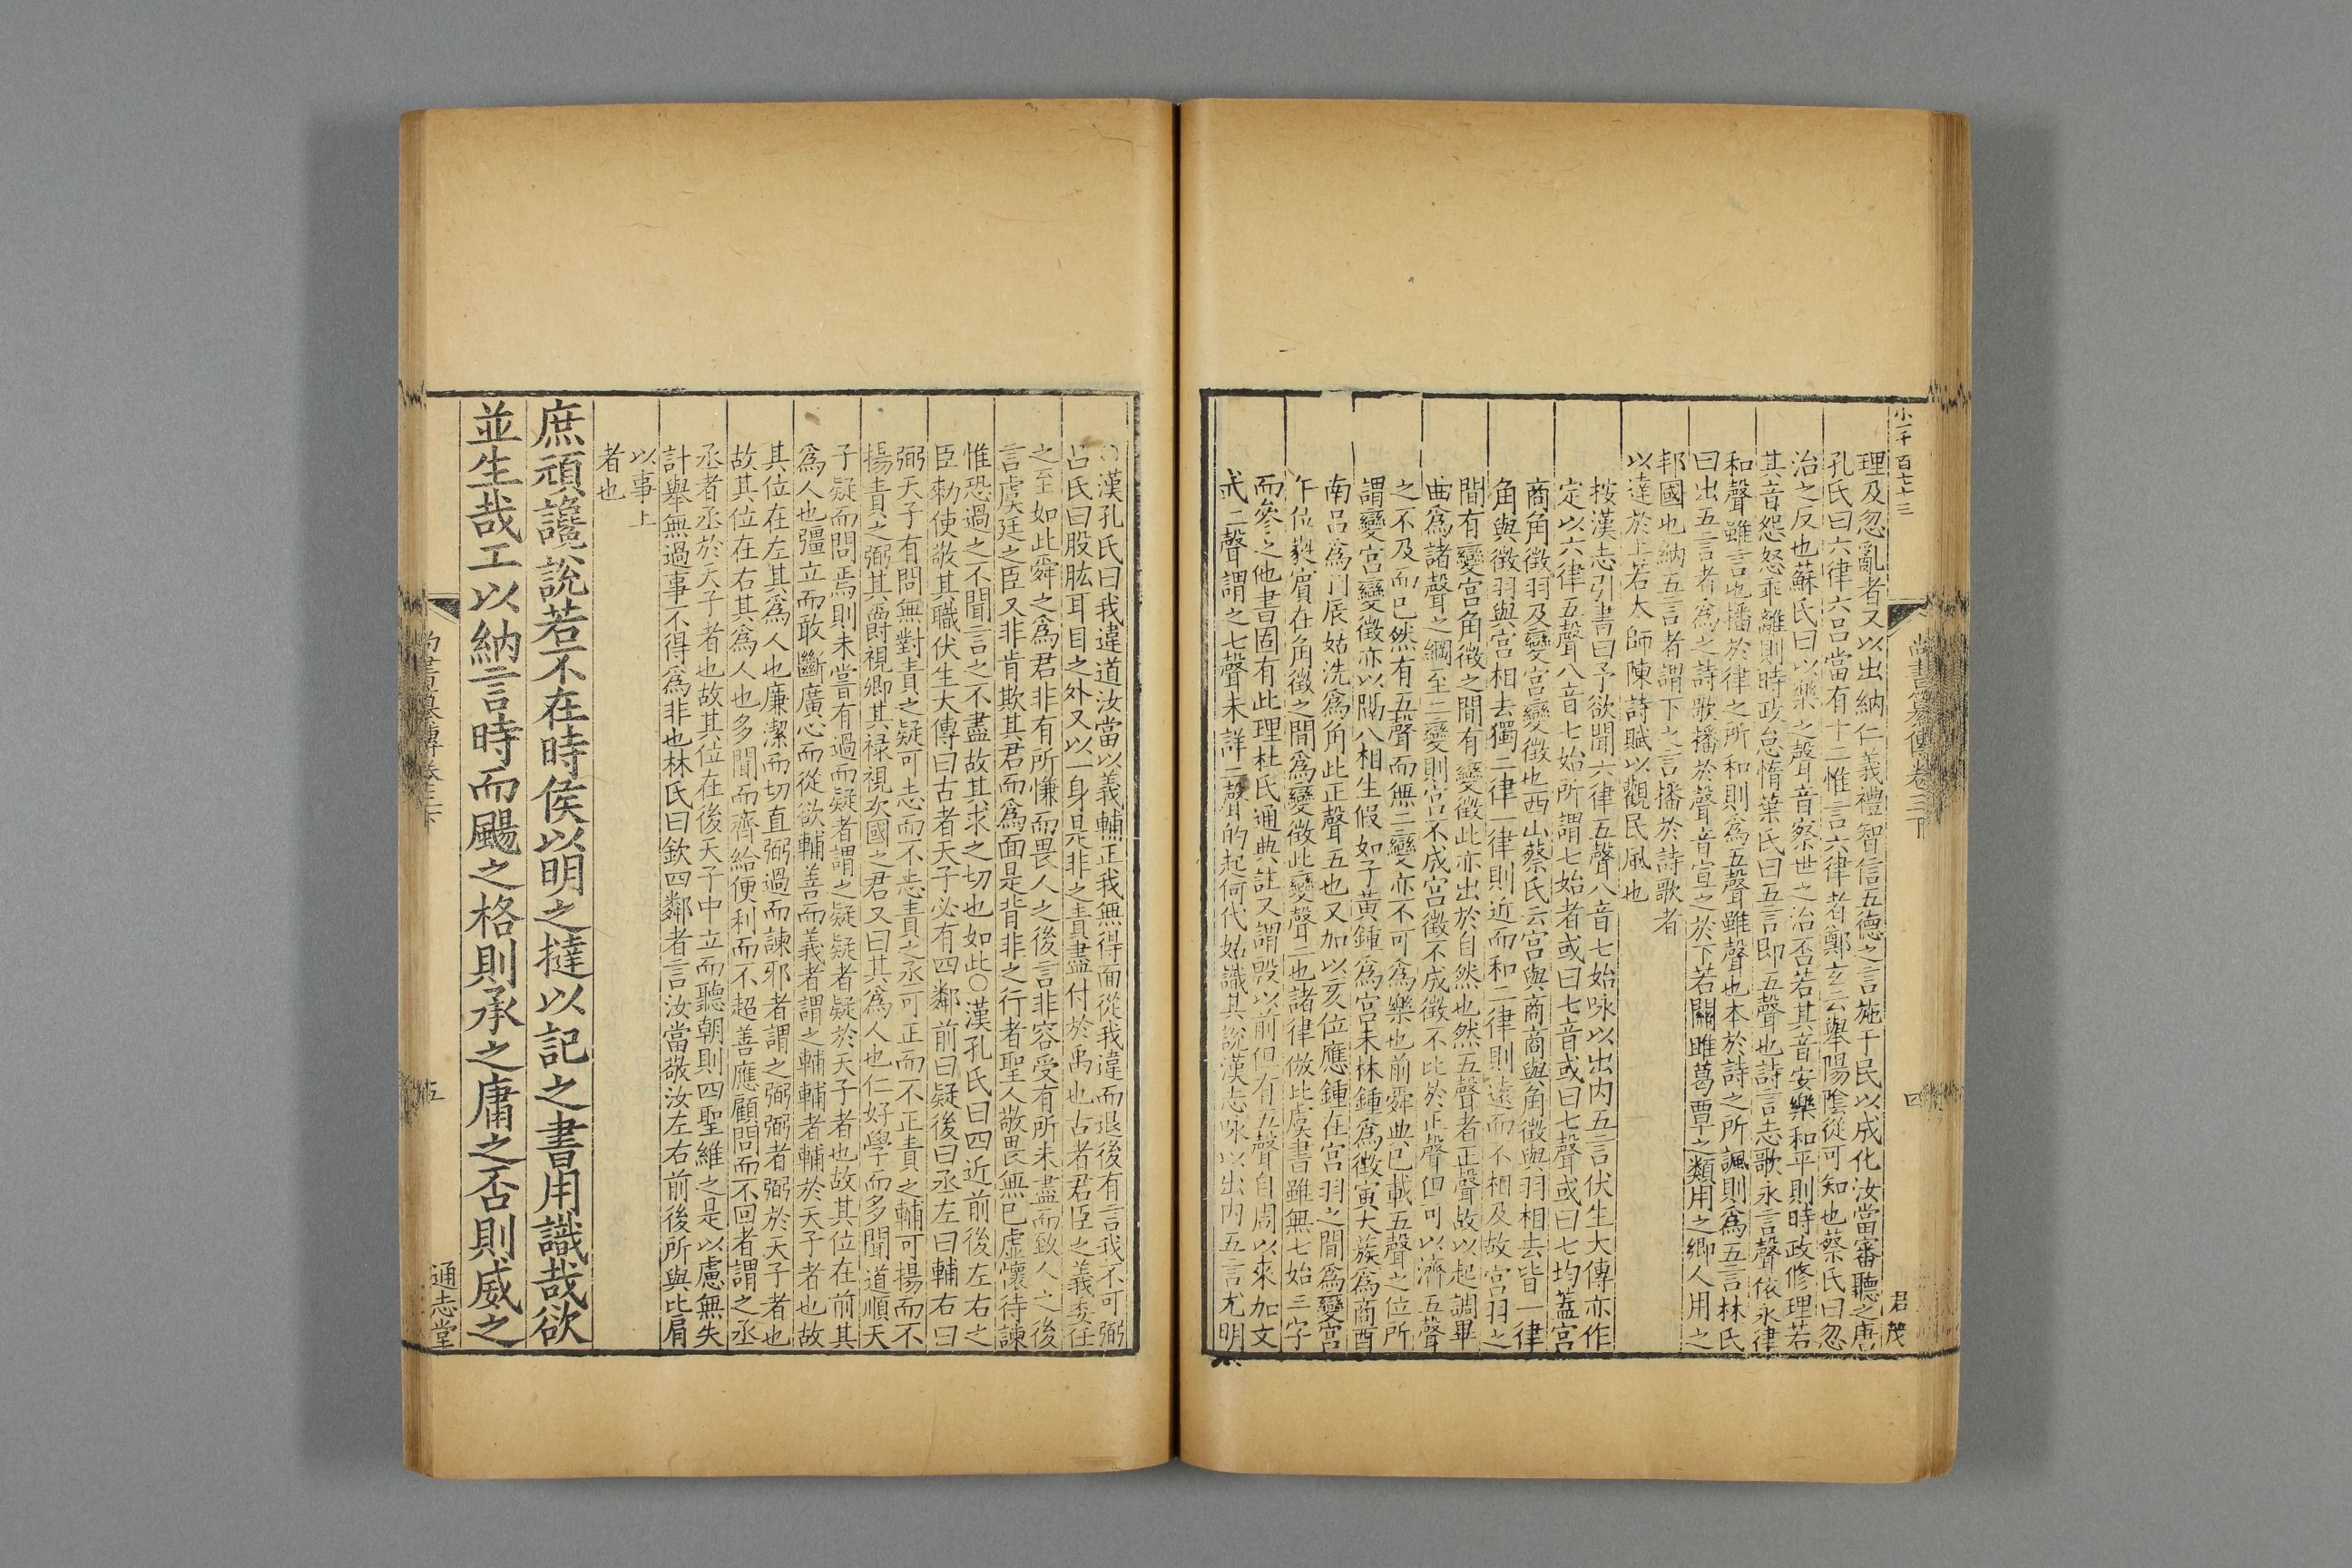 小一千百七十三
尚書纂傳卷三下
四
君茂
理及忽亂者又以出納仁義禮智信五德之言施于民以成化汝當審聽之唐
孔氏曰六律六呂當有十二惟言六律者鄭玄云舉陽陰從可知也蔡氏曰忽
治之反也蘇氏曰以樂之聲音察世之治否若其音安樂和平則時政修理若
其音怨怒乖離則時政怠惰葉氏曰五言即五聲也詩言志歌永言聲依永律
和聲雖言也播於律之所和則為五聲雖聲也本於詩之所諷則為五言林氏
曰出五言者為之詩歌播於聲音宣之於下若關雎葛覃之類用之鄉人用之
邦國也納五言者謂下之言播於詩歌者
以達於上若太師陳詩賦以觀民風也
按漢志引書曰予欲聞六律五聲八音七始咏以出内五言伏生大傳亦作
定以六律五聲八音七始所謂七始者或曰七音或曰七聲或曰七均蓋宮
商角徵羽及變宮變徵也西山蔡氏云宮與商商與角徵與羽相去皆一律
角與徵羽與宮相去獨二律一律則近而和二律則遠而不相及故宮羽之
間有變宮角徵之間有變徵此亦出於自然也然五聲者正聲故以起調畢
曲為諸聲之綱至二變則宮不成宮徵不成徵不比於正聲但可以濟五聲
之不及而已然有五聲而無二變亦不可為樂也前舜典已載五聲之位所
謂變宮變徵亦以隔八相生假如子黃鍾為宮未林鍾為徵寅大蔟為商酉
南呂為羽辰姑洗為角此正聲五也又加以亥位應鍾在宮羽之間為變宮
午位蕤賓在角徵之間為變徵此變聲二也諸律倣此虞書雖無七始三字
而參之他書固有此理杜氏通典註又謂殷以前但有五聲自周以來加文
武二聲謂之七聲未詳二聲的起何代姑識其說漢志咏以出内五言尤明
○漢孔氏曰我違道汝當以義輔正我無得面從我違而退後有言我不可弼
呂氏曰股肱耳目之外又以一身是非之責盡付於禹也古者君臣之義委任
之至如此舜之為君非有所慊而畏人之後言非容受有所未盡而致人之後
言虞廷之臣又非肯欺其君而為面是背非之行者聖人敬畏無已虛懷待諫
惟恐過之不聞言之不盡故其求之切也如此○漢孔氏曰四近前後左右之
臣勑使敬其職伏生大傳曰古者天子必有四鄰前曰疑後曰丞左曰輔右曰
弼天子有問無對責之疑可志而不志責之丞可正而不正責之輔可揚而不
揚責之弼其爵視卿其祿視次國之君又曰其為人也仁好學而多聞道順天
子疑而問焉則未嘗有過而疑者謂之疑疑者疑於天子者也故其位在前其
為人也彊立而敢斷廣心而從欲輔善而義者謂之輔輔者輔於天子者也故
其位在左其為人也廉潔而切直弼過而諫邪者謂之弼弼者弼於天子者也
故其位在右其為人也多聞而齊給便利而不超善應顧問而不回者謂之丞
丞者丞於天子者也故其位在後天子中立而聽朝則四聖維之是以慮無失
計舉無過事不得為非也林氏曰欽四鄰者言汝當敬汝左右前後所與比肩
以事上
者也
庶頑讒說若不在時侯以明之撻以記之書用識哉欲
並生哉工以納言時而颺之格則承之庸之否則威之
尚書纂傳卷三下
五
通志堂